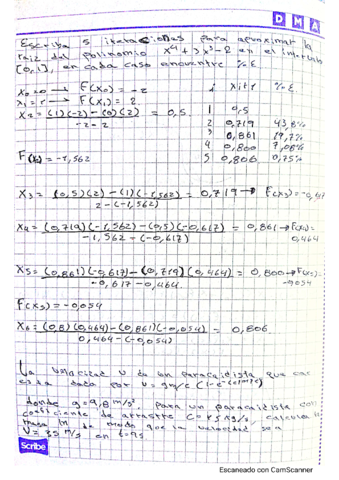 D M A
Escriba 5 iteraciones para aproximar la
raiz del polinomio x⁴+3x³-2 en el intervalo
[0,1], en cada caso encuentre %E
x₀=0 → F(x₀)=-2
x₁=1 → F(x₁)=2
i xi+1 %E
X₂=(1)(-2)-(0)(2)/-2-2 = 0,5
1 0,5
2 0,719 43,8%
3 0,861 19,7%
4 0,800 7,08%
5 0,806 0,75%
F(x₂)=-1,562
X₃=(0,5)(2)-(1)(-1,562)/2-(-1,562) = 0,719 → F(x₃)=-0,617
X₄=(0,719)(-1,562)-(0,5)(-0,617)/-1,562-(-0,617) = 0,861 → F(x₄)=
0,464
X₅=(0,861)(-0,617)-(0,719)(0,464)/-0,617-0,464 = 0,800 → F(x₅)=
-0,054
F(x₅)=-0,054
X₆=(0,8)(0,464)-(0,861)(-0,054)/0,464-(-0,054) = 0,806
La velocidad v de un paracaidista que cae
esta dada por v=gm/c(1-e^-(c/m)t)
donde g=9,8 m/s² para un paracaidista con
coeficiente de arrastre c=15 kg/s, calcula la
masa m de modo que la velocidad sea
v=35 m/s en t=9s
Scribe
Escaneado con CamScanner